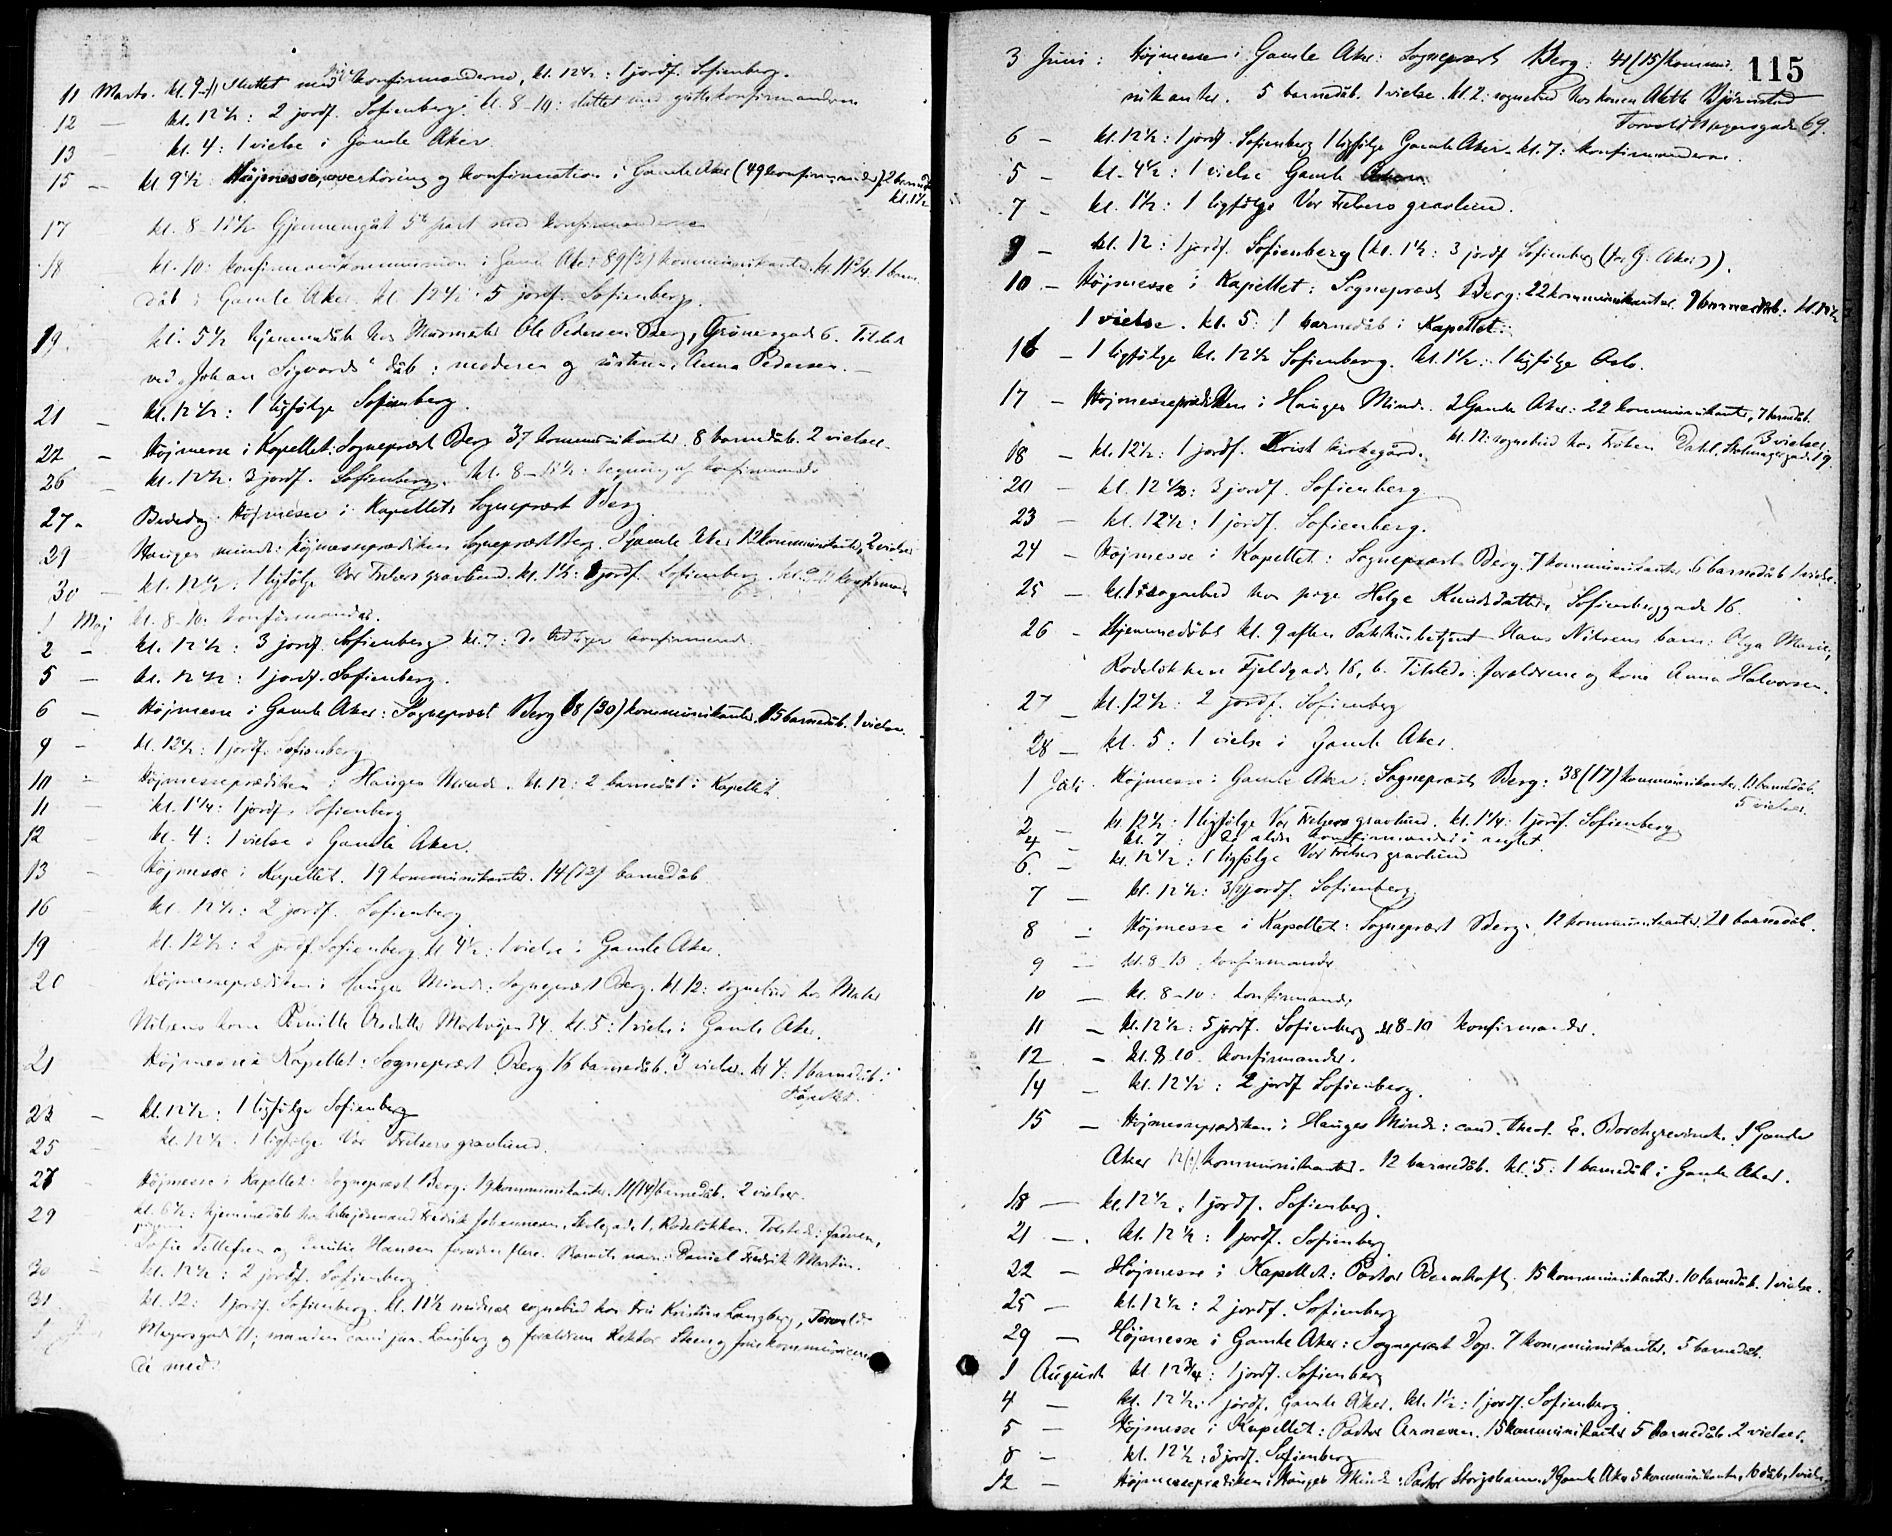 11 Marts. kl. 9-11 Sluttet med konfirmanderne, kl. 12½: 1 jordf. Sofienberg.
12 — kl. 12½: 2 jordf. Sofienberg. kl. 8-10: sluttet med guttekonfirmanderne
13 — kl. 4: 1 vielse i Gamle Aker.
15 — kl 9½: Højmesse, overhøring og konfirmation i Gamle Aker (49 konfirmander) 2 barnedåb
kl. 1½
17 kl. 8-11½ Gjennemgåt 5te part med konfirmanderne
18 kl. 10: konfirmandkommunion i Gamle Aker: 89 (3) kommunikanter. kl. 11¾. 1 barne
dåb i Gamle Aker. kl. 12½: 5 jordf. Sofienberg.
19. kl. 5½ hjemmedåb hos Murmester Ole Pedersen Berg, Grünersgade 6. Tilsted
ved „Johan Sigvards“ dåb: moderen og søsteren Anna Pedersen.—
21 — kl. 12½: 1 ligfølge Sofienberg.
22 — Højmesse i Kapellet: Sogneprest Berg 37 kommunikanter. 8 barnedåb. 2 vielser.
26 — kl. 12½. 3 jordf. Sofienberg. kl. 8-11½: tegning af konfirmander
27 - Bededag. Højmesse i Kapellet: Sogneprest Berg.
29 Hauges minde: Højmesseprædiken Sogneprest Berg. I Gamle Aker 12 kommunikanter, 2 vielser
30 — kl. 12½: 1 ligfølge Vor Frelsers gravlund. kl. 1½: 1 jordf. Sofienberg. kl. konfirmand
1 Maj kl. 8-10. konfirmander.
2 — kl. 12½: 3 jordf. Sofienberg kl. 7: De konfirmerede
5 — kl. 12½: 1 jordf. Sofienberg.
6 — Højmesse i Gamle Aker: Sogneprest Berg 68 (30) kommunikanter. 15 barnedåb. 1 vielse.
9 — kl. 12½: 1 jordf. Sofienberg
10 — Højmesseprædiken i Hauges Minde. kl. 12: 2 barnedåb i Kapellet.
11 — kl. 1¼: 1 jordf. Sofienberg
12 — kl. 4: 1 vielse i Gamle Aker.
13 — Højmesse i Kapellet. 19 kommunikanter. 14 (13) barnedåb.
16 — kl. 12½: 2 jordf. Sofienberg.
19 kl. 12½: 2 jordf. Sofienberg. kl 4½: 1 vielse i Gamle Aker.
20 Højmesseprædiken i Hauges Minde: Sogneprest Berg. kl. 12: sognebud hos Maler
Nilsens kone Pernille Markvejen 34. kl. 5: 1 vielse i Gamle Aker.
21 Højmesse i Kapellet: Sogneprest Berg 16 barnedåb. 3 vielser. kl 4: 1 barnedåb i
Kapellet.
23 — kl. 12½: 1 ligfølge Sofienberg
25 — kl. 12½. 1 ligfølge Vor Frelsers gravlund.
27 — Højmesse i Kapellet: Sogneprest Berg. 19 kommunikanter. 11 (14) barnedåb. 2 vielser.
29 kl. 6½: hjemmedåb hos Arbejdsmand Fredrik Johannesen, Skolegade 1, Rodeløkken. Tilstede: faderen,
pigerne Sofie Tollefsen og Emilie Hansen foruden flere. Barnets navn: Daniel Fredrik Martin.
30 — kl. 12½: 2 jordf. Sofienberg
31 kl. 12: 1 jordf. Sofienberg. kl. 11½ midnat sognebud hos Fru Kristine Langberg, Torvald
Meyersgade 11; manden Langberg og forældrene Rektor Steen og frue kommunicere
de med.
115
3 Juni: Højmesse i Gamle Aker: Sogneprest Berg: 44 (15) kommu-
nikanter. 5 barnedåb. 1 vielse. kl. 2: sognebud hos konen Anette Bjørnstad
Torvald Meyersgade 69.
6 — kl. 12½: 1 jordf. Sofienberg 1 ligfølge Gamle Aker. kl. 7: konfirmanderne.
5 — kl. 4½: 1 vielse Gamle Aker.
7 — kl. 1½: 1 ligfølge Vor Frelsers gravlund.
9 — kl. 12: 1 jordf. Sofienberg (kl. 1½: 3 jordf Sofienberg (for G. Aker)).
10 — Højmesse i Kapellet: Sogneprest Berg: 22 kommunikanter 9 barnedåb. kl. 12½
1 vielse. kl. 5: 1 barnedåb i Kapellet.
16 — 1 ligfølge kl. 12½ Sofienberg. kl. 1½: 1 ligfølge Oslo.
17 — Højmesseprædiken i Hauges Minde. I Gamle Aker: 22 kommunikanter, 7 barnedåb.
3 vielser
18 — kl. 12½: 1 jordf. Krist kirkegård. kl. 12: sognebud hos Frøken Dahl, 19.
20 — kl. 12½: 3 jordf. Sofienberg
23 — kl. 12½: 1 jordf. Sofienberg.
24 — Højmesse i Kapellet: Sogneprest Berg. 7 kommunikanter 6 barnedåb 1 vielse.
25 — kl. 1: sognebud hos pige Helge Knudsdatter, Sofienberggade 16.
26 — Hjemmedøbt kl. 9 aften Pakhusbetjent Hans Nilsens barn: Olga Marie,
Rodeløkken Fjeldgade 16, b. Tilstede: forældrene og kone Anna Halvorsen.
27 — kl. 12½: 2 jordf. Sofienberg
28 — kl. 5: 1 vielse i Gamle Aker.
1 Juli. Højmesse: Gamle Aker: Sogneprest Berg: 38 (17) kommunikanter. 11 barnedåb.
5 vielser.
2 — kl. 12½: 1 ligfølge Vor Frelsers gravlund. kl. 1¼: 1 jordf. Sofienberg
4 — kl. 7: De ældre konfirmander
6. — kl. 12½: 1 ligfølge Vor Frelsers gravlund
7 — kl. 12½: 3 jordf. Sofienberg.
8 — Højmesse i Kapellet: Sogneprest Berg. 12 kommunikanter, 21 barnedåb.
9 — kl. 8-10: konfirmander
10 — kl. 8-10: konfirmander
11 — kl. 12½: 5 jordf. Sofienberg kl 8-10 konfirmander.
12 — kl. 8-10. konfirmander.
14 — kl. 12½: 2 jordf Sofienberg.
15 — Højmesseprædiken i Hauges Minde: cand. theol. E. Borchgrevink. I Gamle
Aker 12 kommunikanter. 12 barnedåb. kl. 5: 1 barnedåb i Gamle Aker.
18 — kl. 12½. 1 jordf. Sofienberg.
21 — kl. 12½: 1 jordf. Sofienberg
22 — Højmesse i Kapellet: Pastor Bernhoft. 15 kommunikanter. 10 barnedåb. 1 vielse.
25 — kl. 12½: 2 jordf. Sofienberg
29 — Højmesse i Gamle Aker: Sogneprest Dop. 7 kommunikanter. 5 barnedåb.
1 August kl. 12¾: 1 jordf. Sofienberg
4 — kl. 12½: 1 jordf. Gamle Aker. kl. 1½: 1 jordf. Sofienberg.
5 — Højmesse i Kapellet: Pastor Arnesen. 15 kommunikanter 5 barnedåb. 2 vielser.
8 — kl. 12½: 3 jordf. Sofienberg
12 — Højmesseprædiken i Hauges Minde: Pastor Storjohann. I Gamle Aker 5 kommunikanter, 10 dåb, 1 vielse